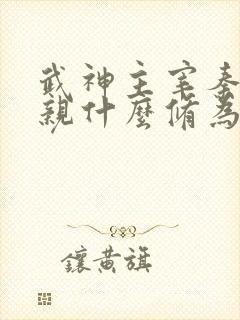 武神主宰秦
親什麼脩為
鑲黃旗